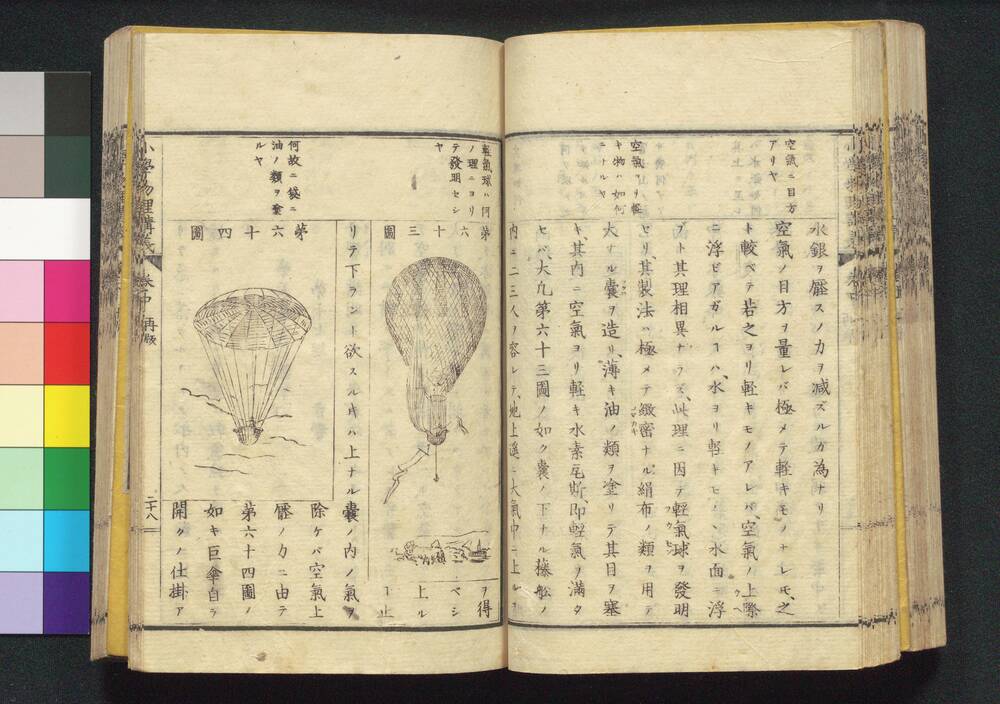 空氣ニ目方
アリヤ
空氣ヨリ輕
キ物ハ如何
ニナルヤ
水銀ヲ壓スノ力ヲ減ズルガ為ナリ
空氣ノ目方ヲ量レバ極メテ軽キモノナレモ、之
ト較ベテ若之ヨリ軽キモノアレバ、空氣ノ上際
ニ浮ビアガルヿハ、水ヨリ軽キモノヽ水面ニ浮
ブト其理相異ナラズ、此理ニ因テ軽氣球ヲ發明
セリ、其製法ハ極メテ緻密ナル絹布ノ類ヲ用テ
大ナル囊ヲ造リ、薄キ油ノ類ヲ塗リテ其目ヲ塞
キ、其内ニ空氣ヨリ軽キ水素瓦斯、即軽氣ヲ満タ
セバ、大九第六十三圖ノ如ク囊ノ下ナル
内ニ二三人ヲ容レテ、地上遥ニ大氣中ニ上ルヿ
輕氣球ハ何
ノ理ニヨリ
テ發明セシ
ヤ
何故ニ袋ニ
油ノ類ヲ塗
ルヤ
第六十三圖
ヲ得
ベシ
上ル
ヿ止
リテ下ラント欲スル時ハ上ナル囊ノ内ノ氣ヲ
第六十四圖
除ケバ空氣上
壓ノ力ニ由テ
第六十四圖ノ
如キ巨傘自ラ
開クノ仕掛ア
小學物理講義
巻中
再版
二十八